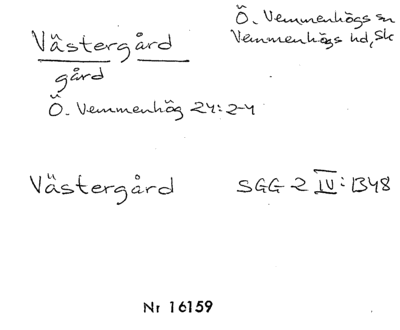 Västergård
gård
Ö. Vemmenhögs sn
Vemmenhögs hd, Sk
Ö. Vemmenhög 24:2-4
Västergård SGG 2 IV: 1348
Nr 16159